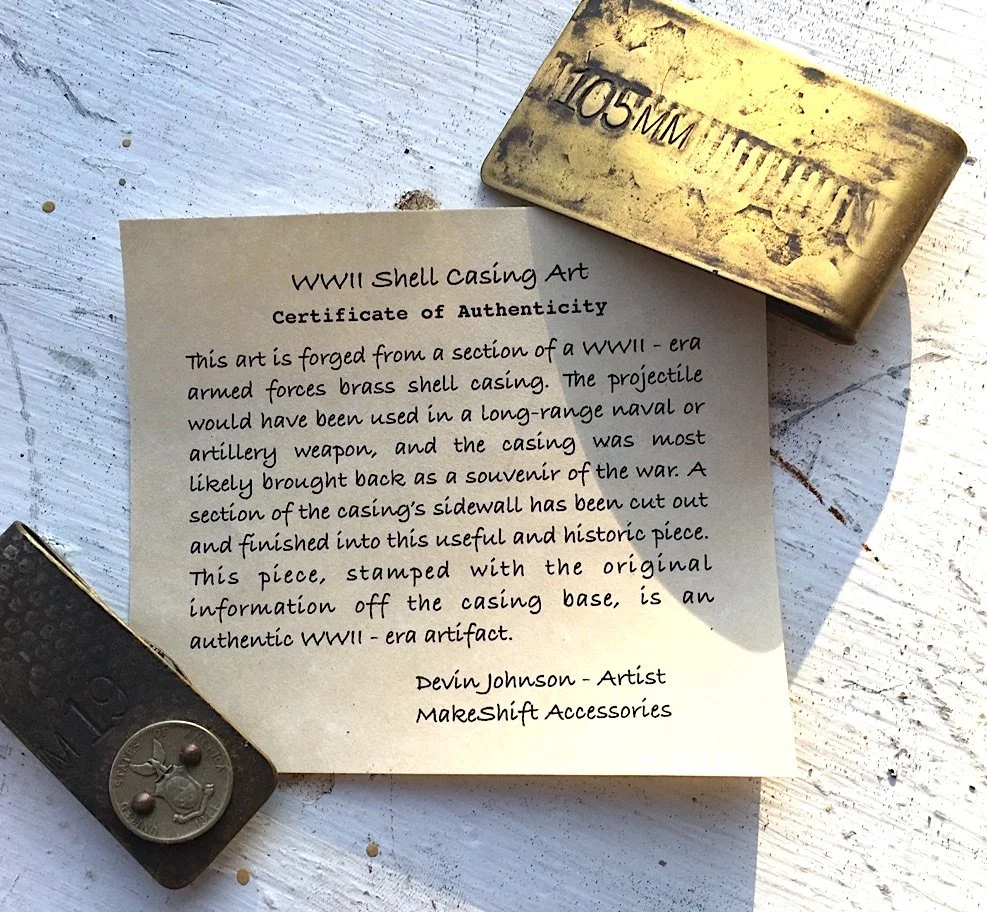 105MM
WWII Shell Casing Art
Certificate of Authenticity
This art is forged from a section of a WWII - era
armed forces brass shell casing. The projectile
would have been used in a long-range naval or
artillery weapon, and the casing was most
likely brought back as a souvenir of the war. A
section of the casing's sidewall has been cut out
and finished into this useful and historic piece.
This piece, stamped with the original
information off the casing base, is an
authentic WWII - era artifact.
Devin Johnson - Artist
MakeShift Accessories
M 19
UNITED STATES OF AMERICA